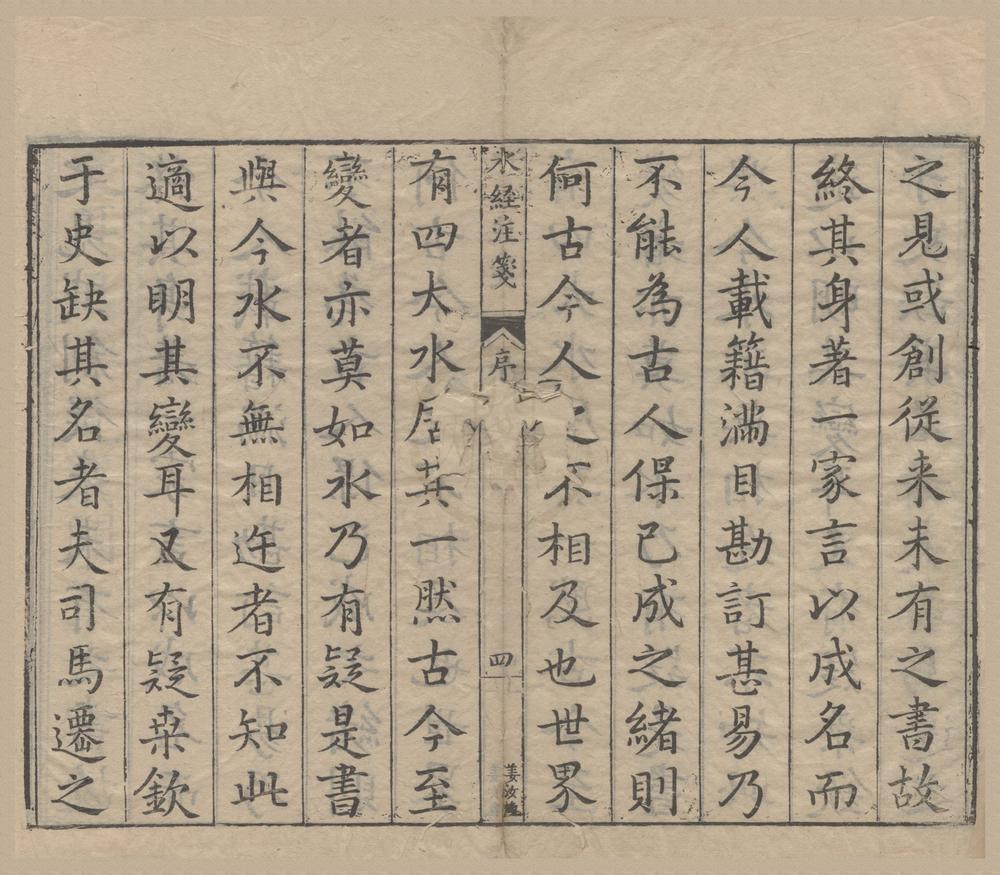 之見或創從来未有之書故
終其身著一家言以成名而
今人載籍滿目勘訂甚易乃
不能為古人保已成之緒則
何古今人之不相及也世界
水經注箋
序
四
姜汝
有四大水居其一然古今至
變者亦莫如水乃有疑是書
與今水不無相迕者不知此
適以明其變耳又有疑桒欽
于史缺其名者夫司馬遷之